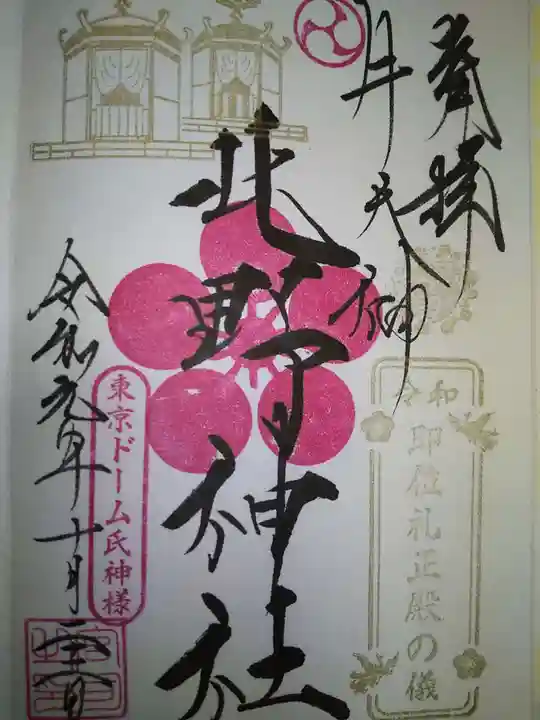 奉拝
牛天神
北野神社
令和
即位礼正殿の儀
東京ドーム氏神様
令和元年十月二十二日